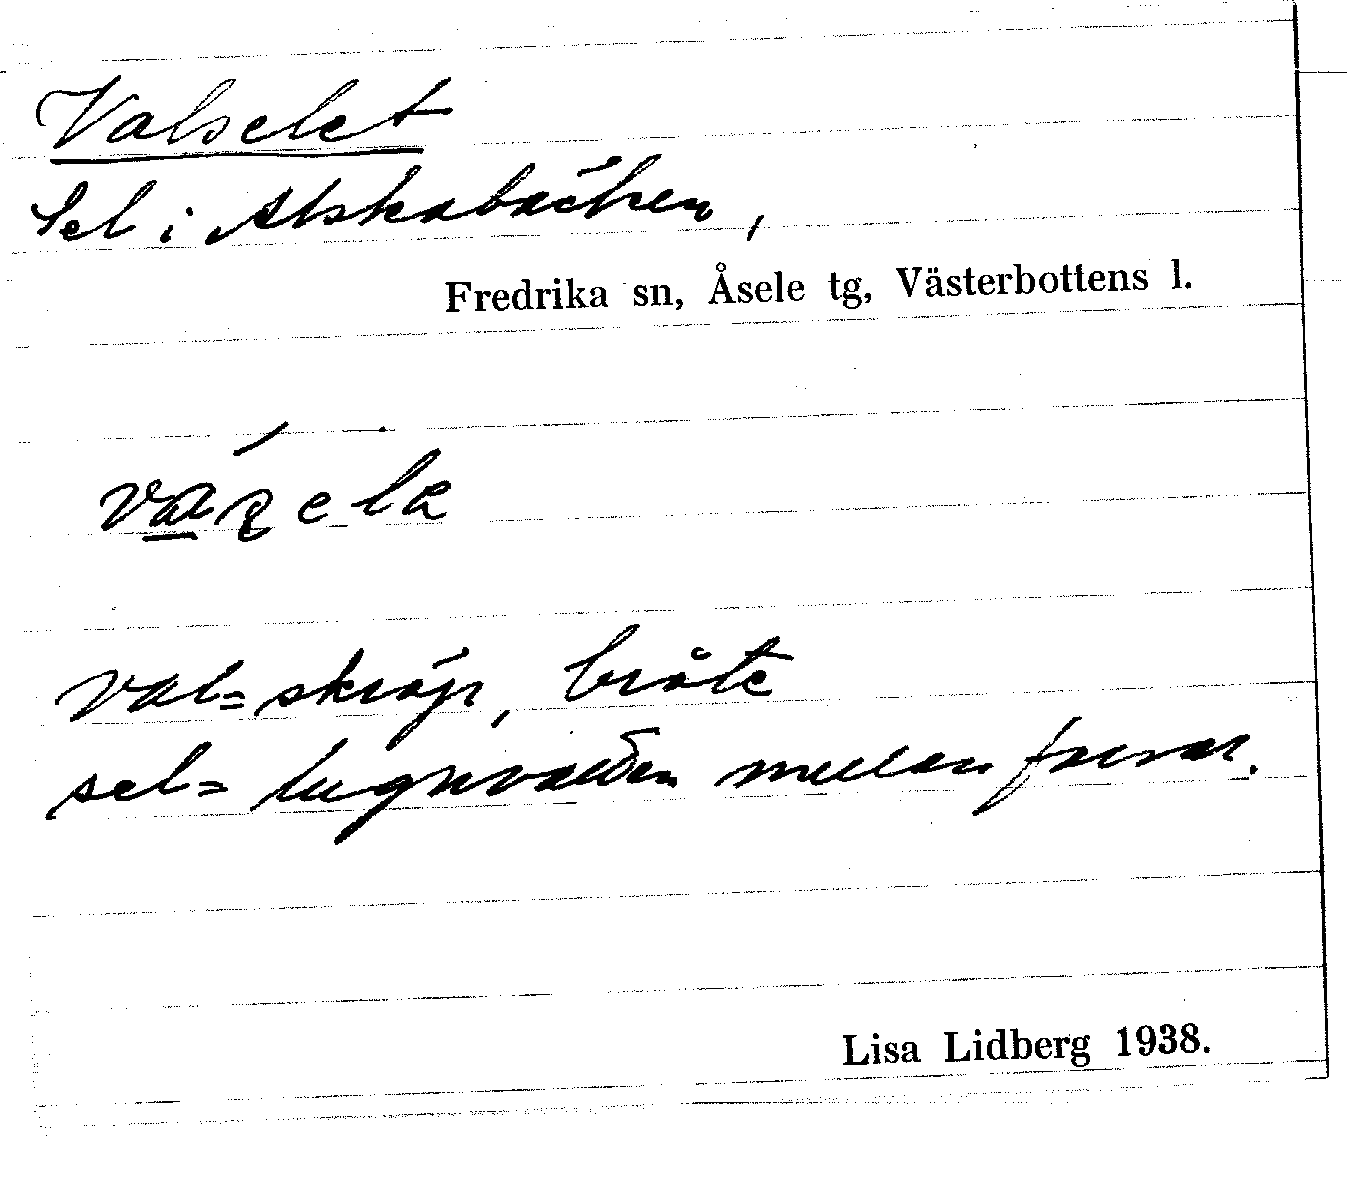 Valselet
Sel i Alskabäcken,
Fredrika sn, Åsele tg, Västerbottens l.
val= skräp, bråte
sel= lugnvatten mellan forsar.
Lisa Lidberg 1938.